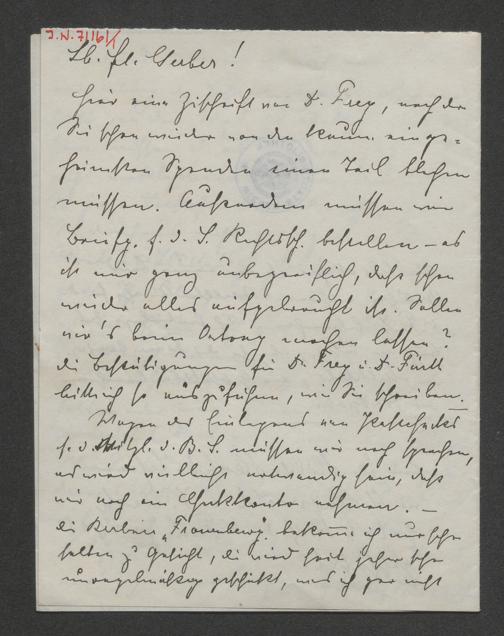 J.N. 7/161/1
Lb. Frl. Gerber!
Hier eine Zuschrift von Dr. Frey, nach der
Sie schon wieder von den kaum einge=
heimsten Spenden einen Teil blechen
müssen. Außerdem müssen wir
Briefp. f. d. S. Rechtssch. bestellen – es
ist mir ganz unbegreiflich, daß schon
wieder alles aufgebraucht ist. Sollen
wir's beim machen lassen?
die Bestätigungen für Dr. Frey u. Dr. Fürth
bitte ich so auszuführen, wie Sie schreiben.
Wegen des Einlegens von
f. d. Mitgl. d. B. S. müssen wir noch sprechen,
es wird vielleicht notwendig sein, daß
wir noch ein nehmen. –
die Berliner „Frauenbeweg." bekomme ich nur sehr
selten zu Gesicht, die wird seit jeher sehr
unregelmäßig geschickt, was ich gar nicht